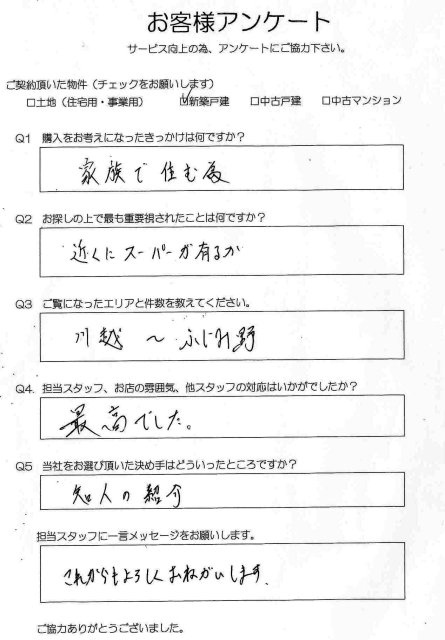 お客様アンケート
サービス向上の為、アンケートにご協力下さい。
ご契約頂いた物件（チェックをお願いします）
□土地（住宅用・事業用） ☑新築戸建 □中古戸建 □中古マンション
Q1 購入をお考えになったきっかけは何ですか？
家族で住む為
Q2 お探しの上で最も重要視されたことは何ですか？
近くにスーパーが有るか
Q3 ご覧になったエリアと件数を教えてください。
川越～ふじみ野
Q4. 担当スタッフ、お店の雰囲気、他スタッフの対応はいかがでしたか？
最高でした。
Q5 当社をお選び頂いた決め手はどういったところですか？
知人の紹介
担当スタッフに一言メッセージをお願いします。
これからもよろしくおねがいします。
ご協力ありがとうございました。